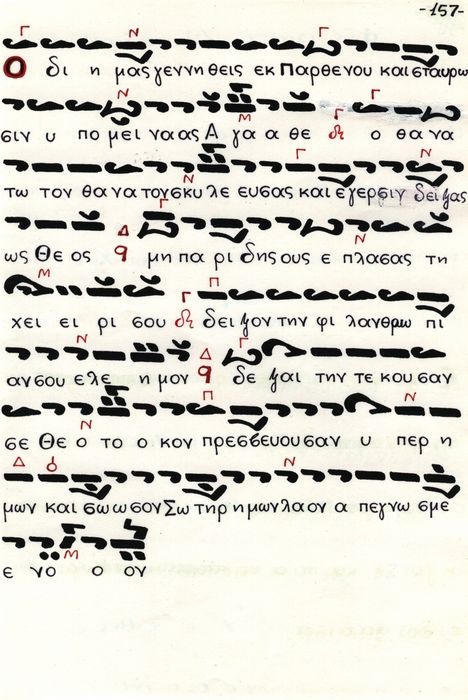 -157-
Γ Ν Γ Ν
Ο δι η μας γεννηθεις εκ Παρθενου και σταυρω
Ν Μ Γ
σιν υ πο μει να ας Α γα α θε ο θα να
Ν Γ Ν
τω τον θα να τον σκυ λε ευσας και εγερσιν δειξας
Δ Γ Ν
ως Θε ος q μη πα ρι δης ους ε πλασας τη
Μ Γ Π
χει ει ρι σου δειξον την φι λανθρω πι
Ν Δ Γ
αν σου ελε η μον q δε ξαι την τε κου σαν
Ν Π Ν
σε Θε ο το ο κον πρεσβευουσαν υ περ η
Δ Ν
μων και σω ω σον Σω τηρ ημων λα ον α πεγνω σμε
Μ
ε νο ο ον